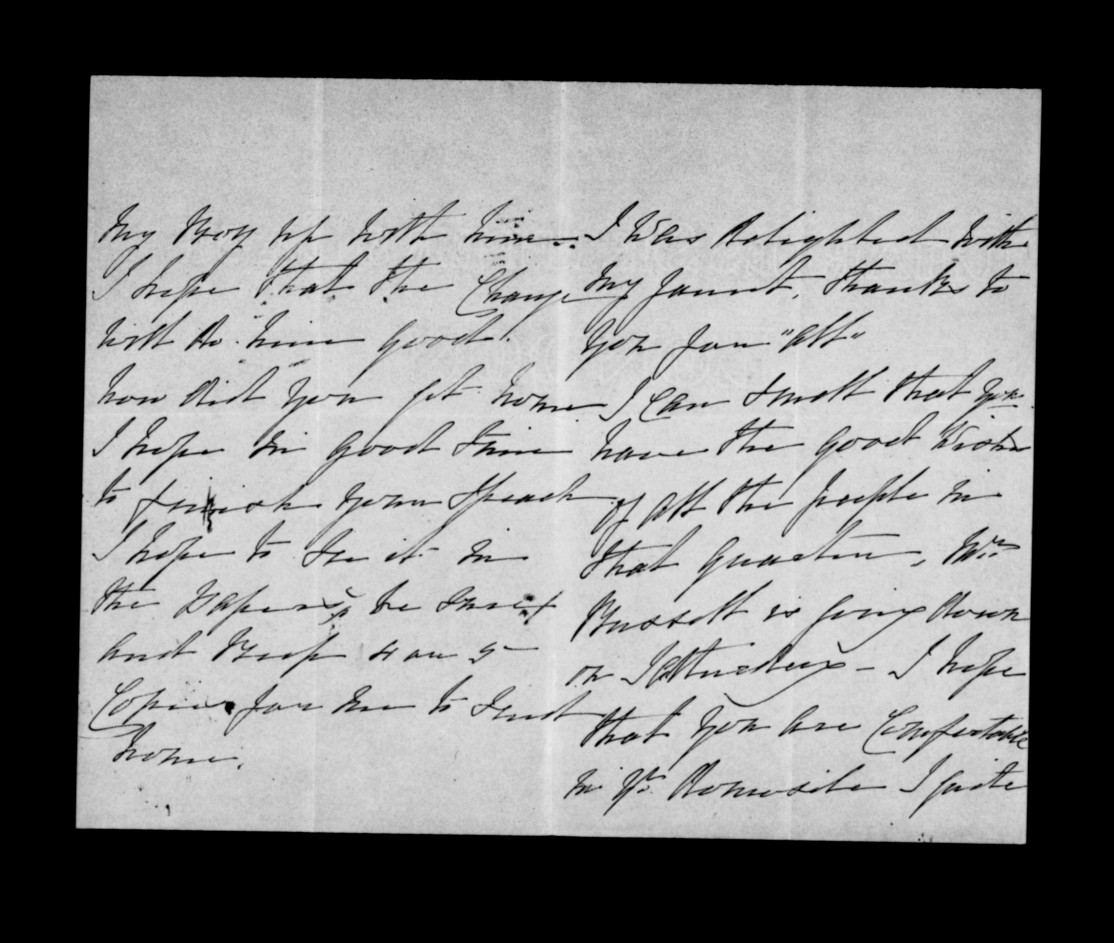 My Boy up with him -
I hope that the Change
will do him good.
how did you get home
I hope in good time
to finish your Speech
I hope to see it in
the Papers, be sure
and Keep 4 or 5
Copies for me to send
home.
I was delighted with
my jaunt, thanks to
you for "all"
I can smell that you
have the good Wishes
of all the people in
that quarter, Mr
Russell is going down
on Saturday - I hope
that you are Comfortable
in yr. domicile I quite